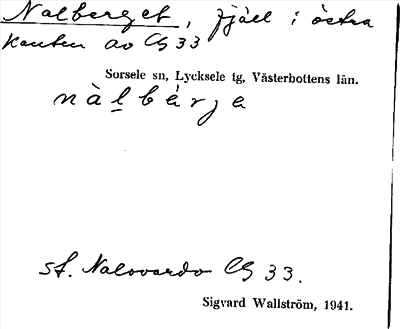 Nalberget, fjäll i östra
kanten av Cg 33
Sorsele sn, Lycksele tg, Västerbottens län.
nàlbärja
sf. Nalovardo Cg 33.
Sigvard Wallström, 1941.